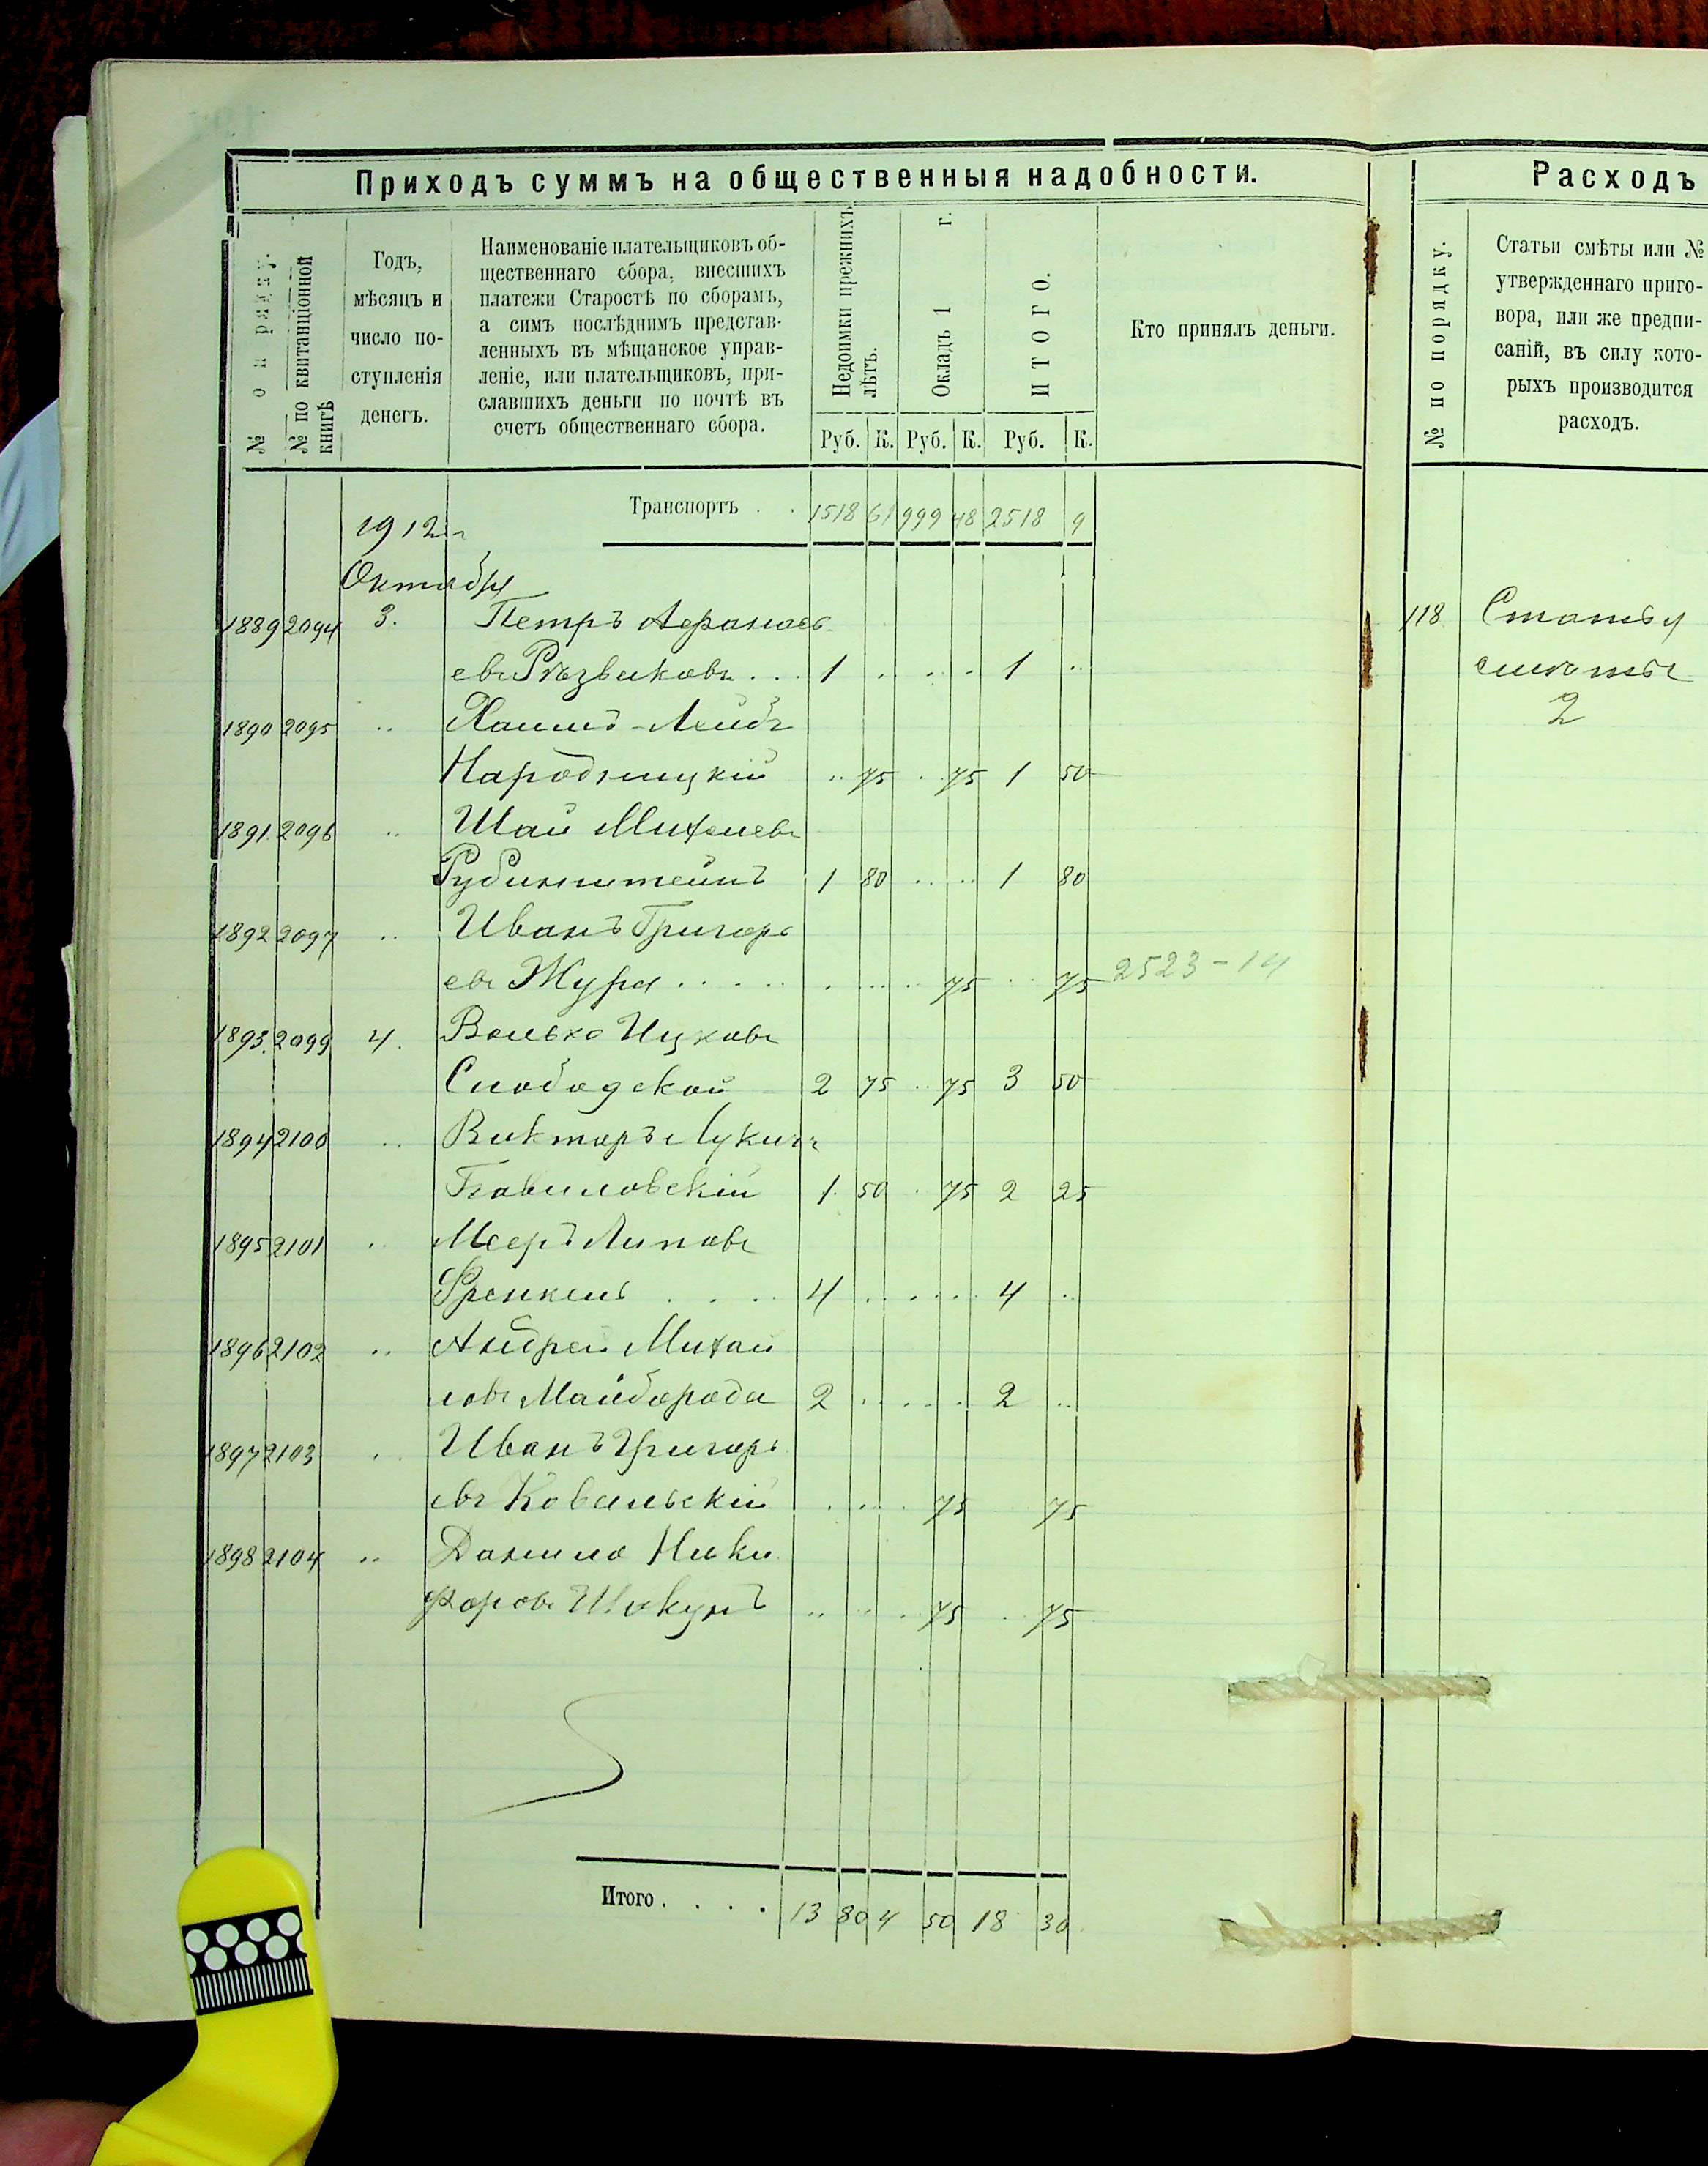 Приходъ суммъ на общественныя надобности.
Расходъ
№ по квитанціонной книгѣ
Годъ,
мѣсяцъ и
число по-
ступленія
денегъ.
Наименованіе плательщиковъ об-
щественнаго сбора, внесшихъ
платежи Старостѣ по сборамъ,
а симъ послѣднимъ представ-
ленныхъ въ мѣщанское управ-
леніе, или плательщиковъ, при-
славшихъ деньги по почтѣ въ
счетъ общественнаго сбора.
Недоимки прежнихъ лѣтъ.
Окладъ 1 г.
ИТОГО.
Кто принялъ деньги.
Руб. К. Руб. К. Руб. К.
№ по порядку.
Статьи смѣты или №
утвержденнаго приго-
вора, или же предпи-
саній, въ силу кото-
рыхъ производится
расходъ.
Транспортъ . . 1518 61 999 48 2518 9
1912 г
Октября
1889 2094 3. Петръ Афанась
евъ Рѣзвиковъ . . . 1 . . . . 1 ..
1890 2095 .. Хаимъ-Лейбъ
Народицкій .. 75 .. 75 1 50
1891. 2096 .. Шая Михелевъ
Рубинштейнъ 1 80 .. .. 1 80
1892 2097 .. Иванъ Григорь
евъ Жура . . . . . . . . . 75 .. 75 2523-14
1893. 2099 4. Волько Ицковъ
Слободской 2 75 .. 75 3 50
1894 2100 .. Викторъ Лукичъ
1. 50 . 75 2 25
1895 2101 .. Мееръ Липовъ
Френкель . . . 4 . . . . . 4 ..
1896 2102 .. Андрей Михай
ловъ Майборода 2 . . . . . 2 ..
1897 2103 .. Иванъ Григорь
евъ Ковальскій . . . . 75 75
1898 2104 .. Данило Ники
форовъ Шкунъ .. . . . 75 . 75
Итого . . . . 13 80 4 50 18 30
118 Статья
смѣты
2